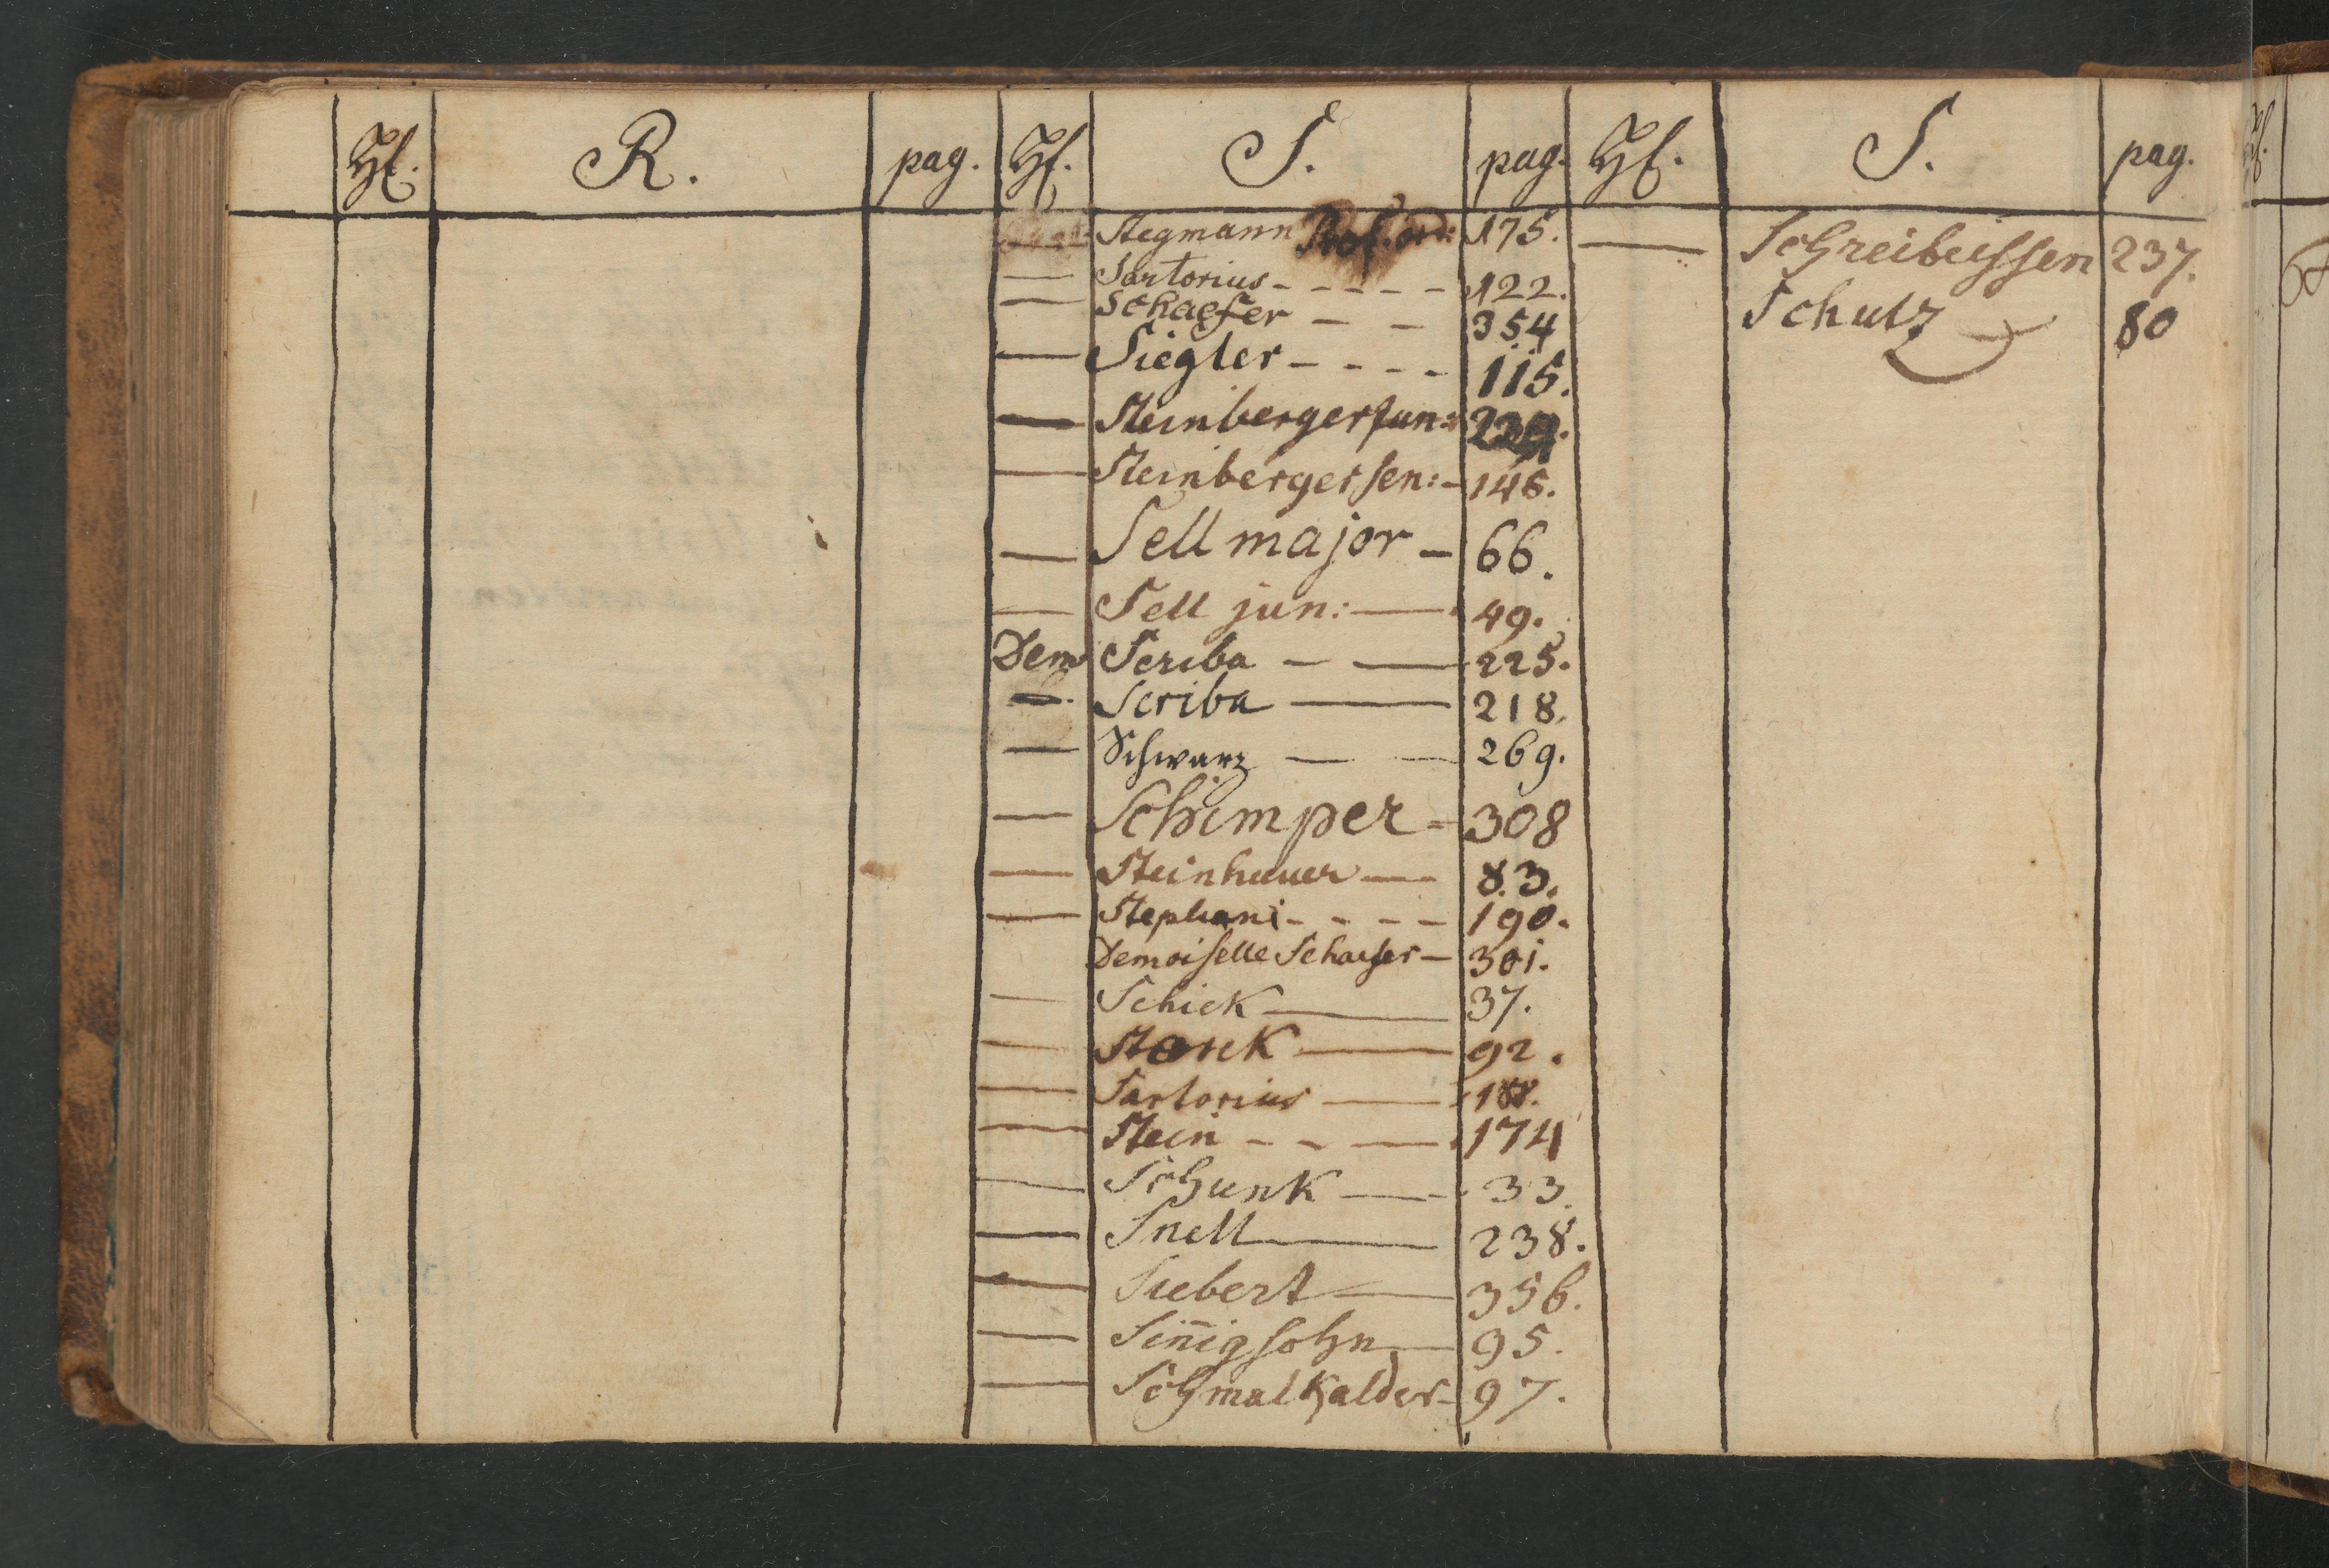 Hl. R. pag. Hl. S. pag. Hl. S. pag.
Stegmann Prof. ord: 175.
— Sartorius - - - - - 122.
— Schaefer — — 354
— Siegler - - - - 115.
— Steinberger jun:
— Steinberger sen: - 146.
— Sell major - 66.
— Sell jun: — 49.
Dem Scriba — — 225.
— Scriba — 218.
— Schwarz — — 269.
— Schimper - 308
— Steinhauer — 83.
— Stephani - - - - 190.
Demoiselle Schaefer — 301.
— Schick — 37.
— Storck — 92.
— Sartorius — 188.
— Stein - - — 174
— Schunk — 33.
— Snell — 238.
— Siebert — 356.
— Sin̄igsohn — 95.
— Schmalkalder - 97.
— Schreibeissen 237.
Schutz 80